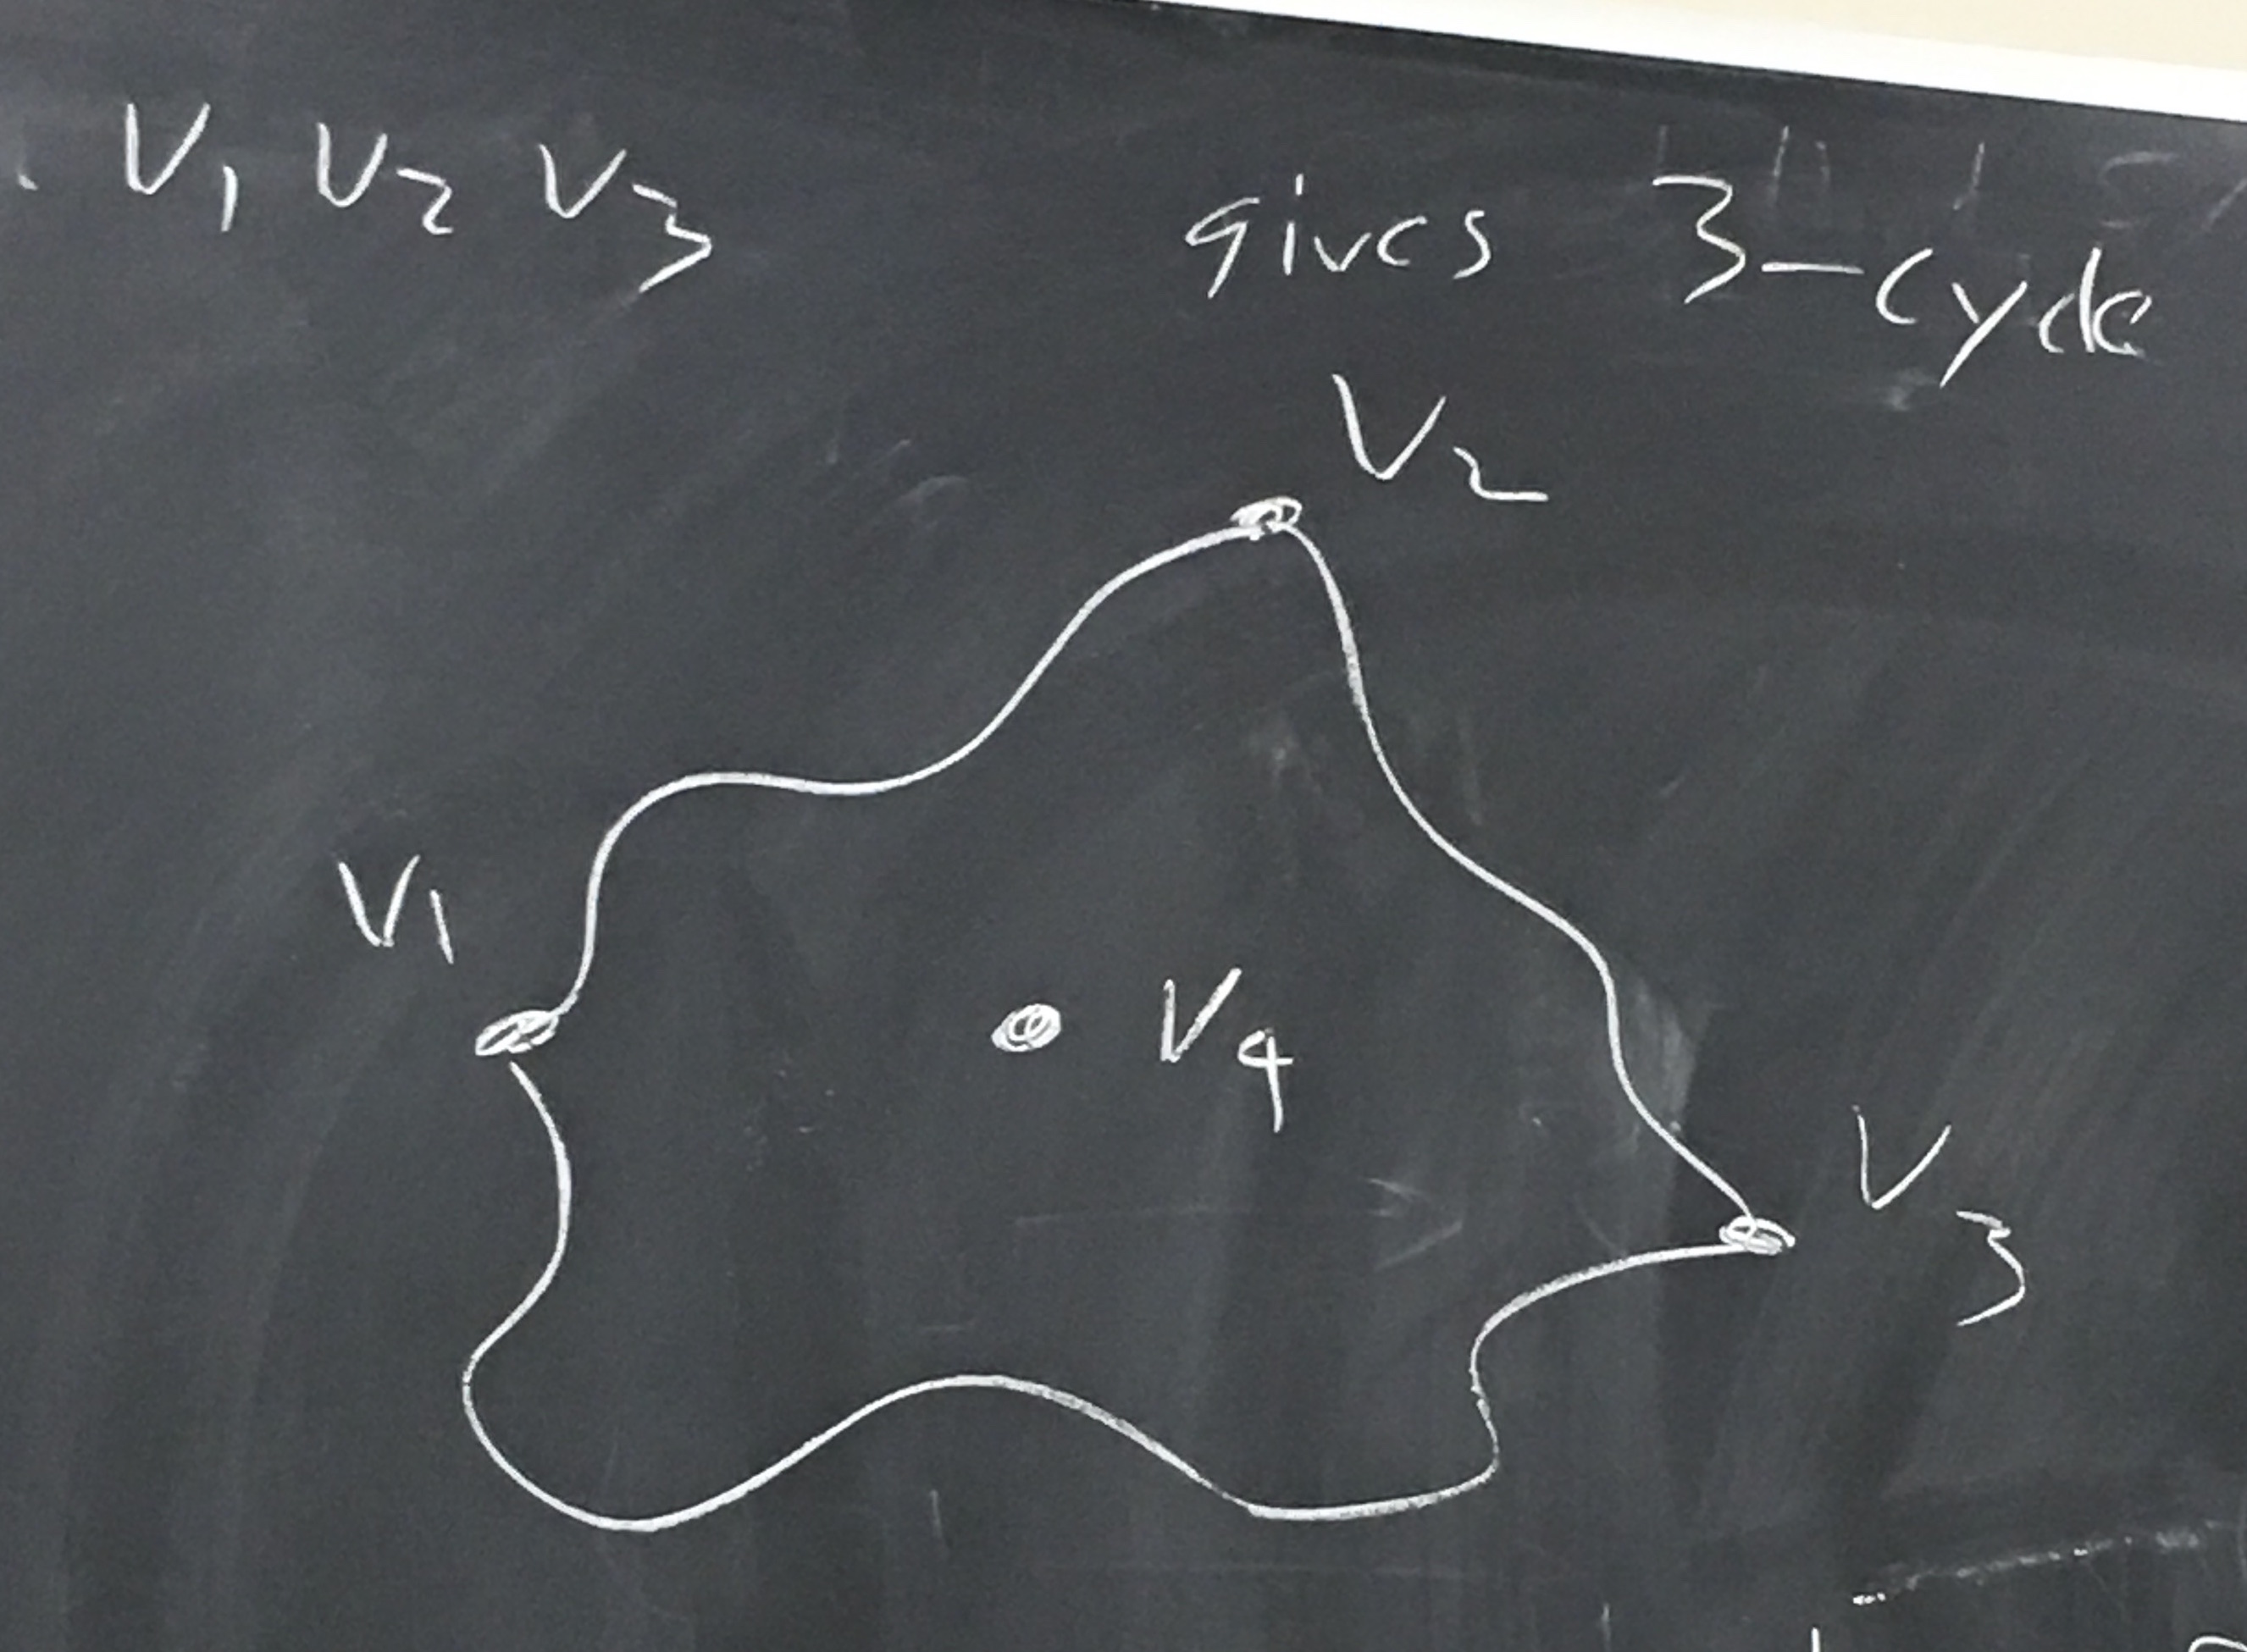 V1 V2 V3 gives 3-cycle
V2
V1
V4
V3